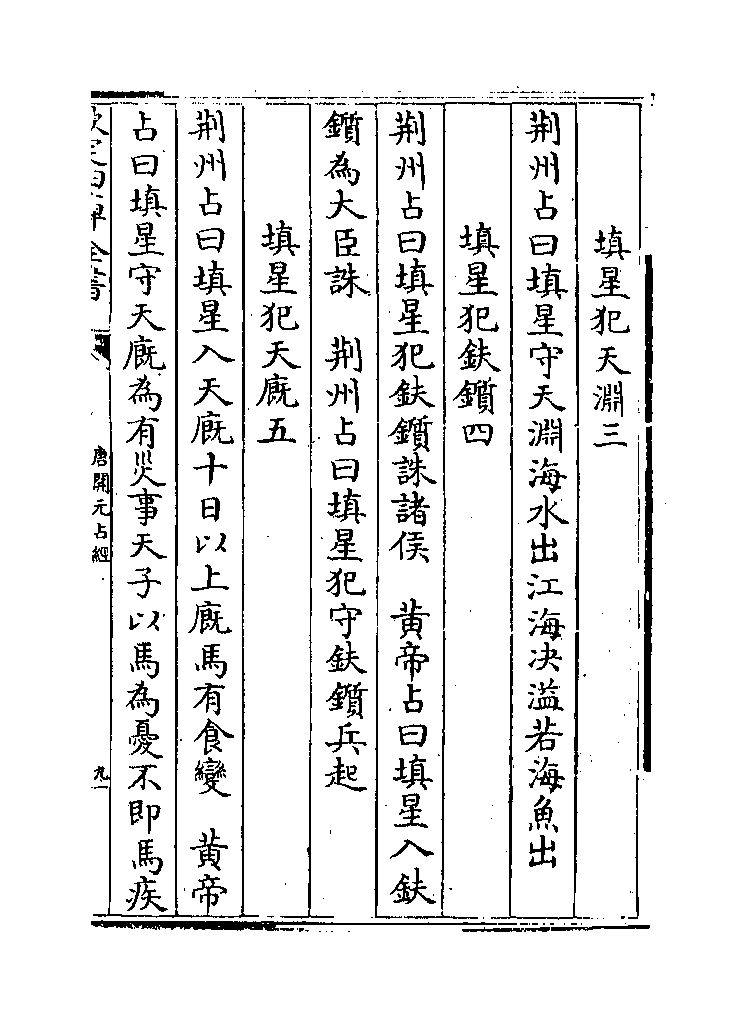 填星犯天淵三
荆州占曰填星守天淵海水出江海决溢若海魚出
填星犯鈇鑕四
荆州占曰填星犯鈇鑕誅諸侯　黄帝占曰填星入鈇
鑕為大臣誅　荆州占曰填星犯守鈇鑕兵起
填星犯天廐五
荆州占曰填星入天廐十日以上廐馬有食變　黄帝
占曰填星守天廐為有災事天子以馬為憂不即馬疾
欽定四庫全書
唐開元占經
九